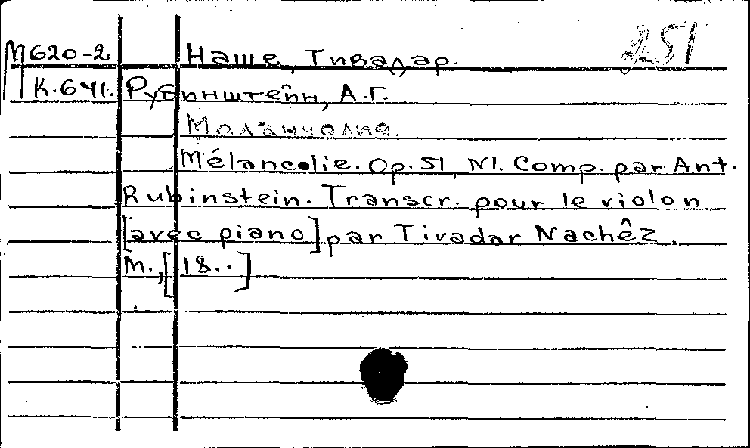 М620-2 Наше, Тивадар. 251
К.641. Рубинштейн, А.Г.
Меланхолия.
Mélancolie. Op. 51, N1. Comp. par Ant.
Rubinstein. Transcr. pour le violon
[avec piano] par Tivadar Nachêz.
М., [18..]